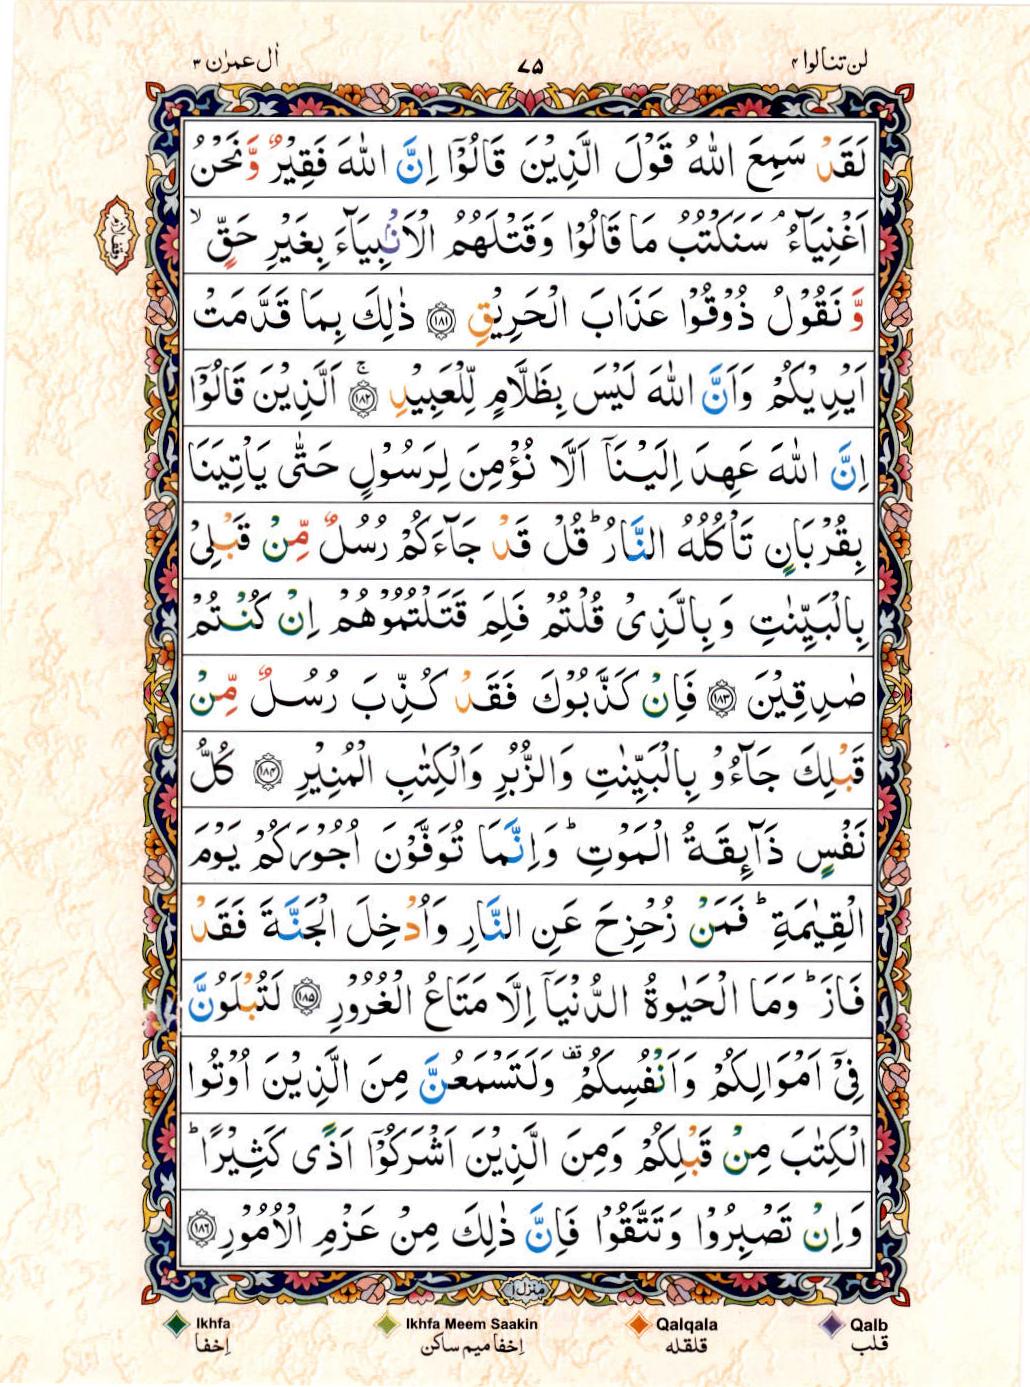 لن تنالوا ۴ ۷۵ اٰل عمرٰن ۳
لَقَدْ سَمِعَ اللّٰهُ قَوْلَ الَّذِيْنَ قَالُوْۤا اِنَّ اللّٰهَ فَقِيْرٌ وَّنَحْنُ
اَغْنِيَآءُ ۘ سَنَكْتُبُ مَا قَالُوْا وَقَتْلَهُمُ الْاَنْۢبِيَآءَ بِغَيْرِ حَقٍّ ۙ
وَّنَقُوْلُ ذُوْقُوْا عَذَابَ الْحَرِيْقِ ۝۱۸۱ ذٰلِكَ بِمَا قَدَّمَتْ
اَيْدِيْكُمْ وَاَنَّ اللّٰهَ لَيْسَ بِظَلَّامٍ لِّلْعَبِيْدِ ۝۱۸۲ ۚ اَلَّذِيْنَ قَالُوْۤا
اِنَّ اللّٰهَ عَهِدَ اِلَيْنَاۤ اَلَّا نُؤْمِنَ لِرَسُوْلٍ حَتّٰى يَاْتِيَنَا
بِقُرْبَانٍ تَاْكُلُهُ النَّارُ ؕ قُلْ قَدْ جَآءَكُمْ رُسُلٌ مِّنْ قَبْلِىْ
بِالْبَيِّنٰتِ وَبِالَّذِىْ قُلْتُمْ فَلِمَ قَتَلْتُمُوْهُمْ اِنْ كُنْتُمْ
صٰدِقِيْنَ ۝۱۸۳ فَاِنْ كَذَّبُوْكَ فَقَدْ كُذِّبَ رُسُلٌ مِّنْ
قَبْلِكَ جَآءُوْ بِالْبَيِّنٰتِ وَالزُّبُرِ وَالْكِتٰبِ الْمُنِيْرِ ۝۱۸۴ كُلُّ
نَفْسٍ ذَآئِقَةُ الْمَوْتِ ؕ وَاِنَّمَا تُوَفَّوْنَ اُجُوْرَكُمْ يَوْمَ
الْقِيٰمَةِ ؕ فَمَنْ زُحْزِحَ عَنِ النَّارِ وَاُدْخِلَ الْجَنَّةَ فَقَدْ
فَازَ ؕ وَمَا الْحَيٰوةُ الدُّنْيَاۤ اِلَّا مَتَاعُ الْغُرُوْرِ ۝۱۸۵ لَتُبْلَوُنَّ
فِىْۤ اَمْوَالِكُمْ وَاَنْفُسِكُمْ ۟ قف وَلَتَسْمَعُنَّ مِنَ الَّذِيْنَ اُوْتُوا
الْكِتٰبَ مِنْ قَبْلِكُمْ وَمِنَ الَّذِيْنَ اَشْرَكُوْۤا اَذًى كَثِيْرًا ؕ
وَاِنْ تَصْبِرُوْا وَتَتَّقُوْا فَاِنَّ ذٰلِكَ مِنْ عَزْمِ الْاُمُوْرِ ۝۱۸۶
وقف لازم
منزل ۱
Ikhfa Ikhfa Meem Saakin Qalqala Qalb
اِخفا اِخفا میم ساکن قلقله قلب